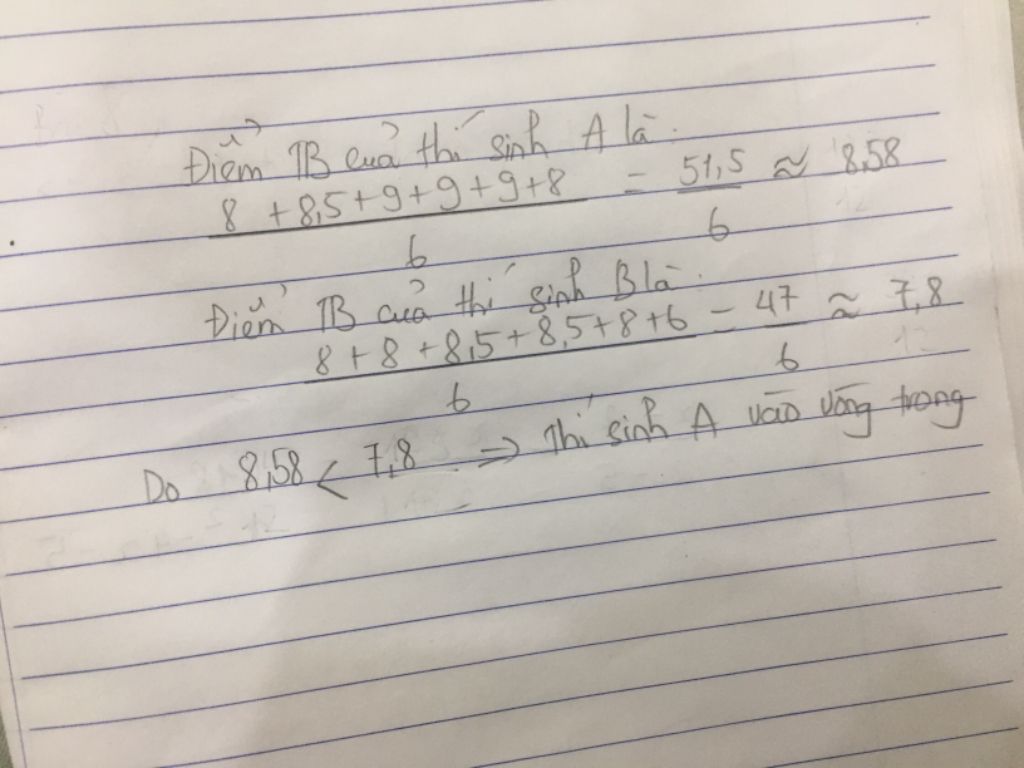 Điểm TB của thí sinh A là.
8 + 8,5 + 9 + 9 + 9 + 8 = 51,5 ≈ 8,58
6 6
Điểm TB của thí sinh B là.
8 + 8 + 8,5 + 8,5 + 8 + 6 = 47 ≈ 7,8
6 6
Do 8,58 < 7,8 => Thí sinh A vào vòng trong